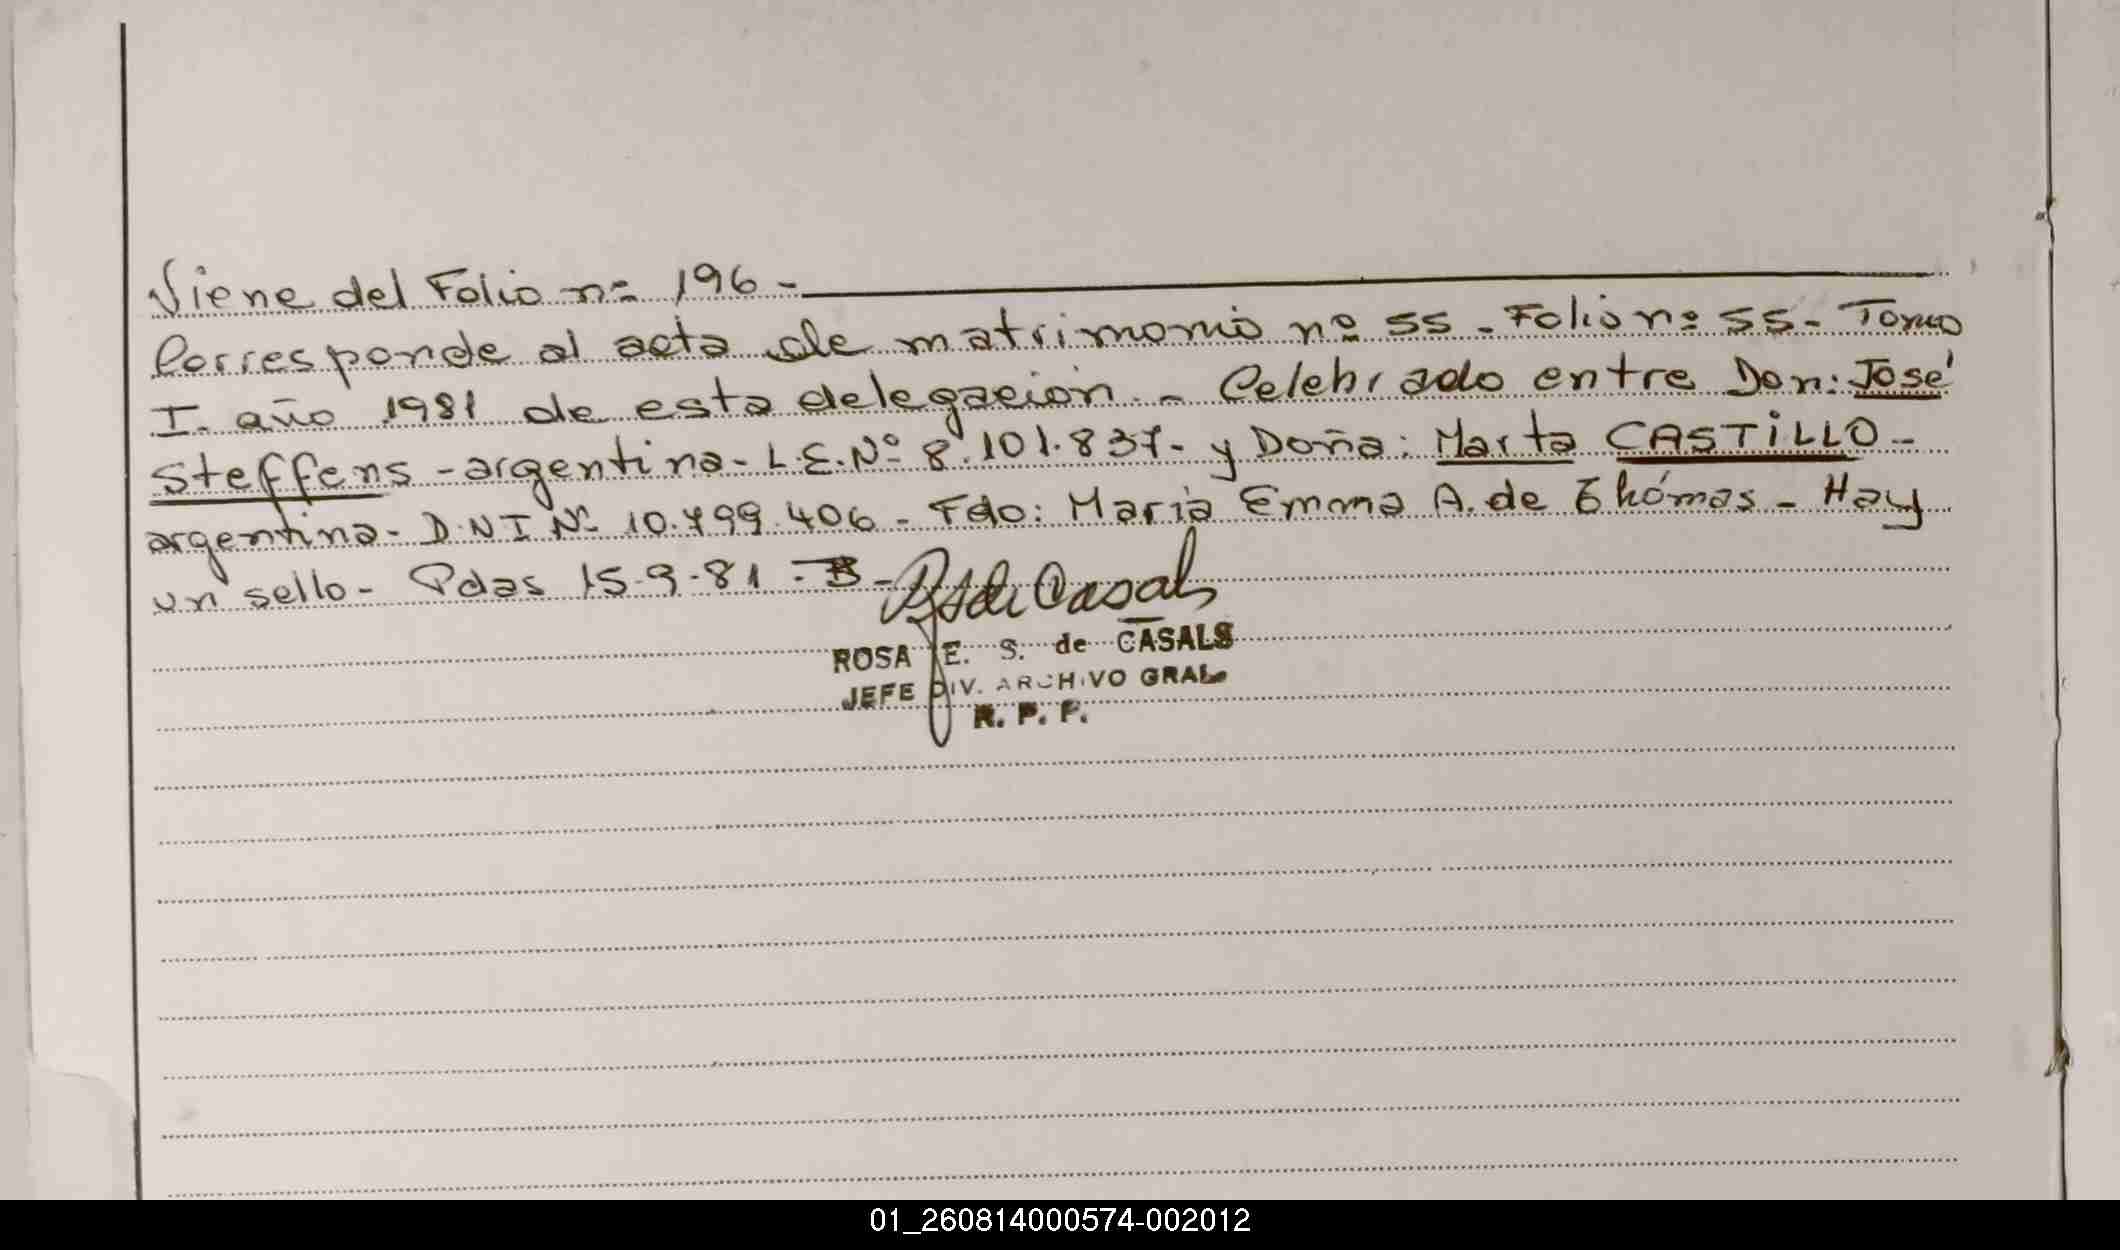 Viene del Folio nº 196 -
Corresponde al acta de matrimonio nº 55 - Folio nº 55 - Tomo
I. año 1981 de esta delegación. - Celebrado entre Don: José
Steffens - argentina - L.E. Nº 8.101.837 - y Doña: Marta CASTiLLO -
argentina - D.N.I Nº 10.799.406 - Fdo: María Emma A. de Thómas - Hay
un sello - Pdas 15-9-81 -
ROSA E. S. de CASALS
JEFE DIV. ARCHIVO GRAL
R. P. P.
01_260814000574-002012